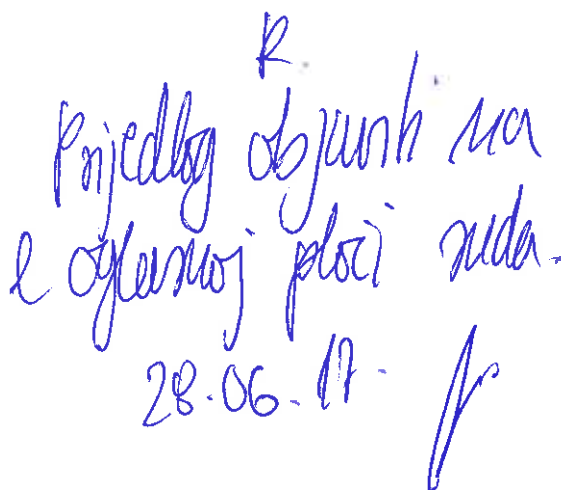 R.
Prijedlog objaviti na
e oglasnoj ploči suda.
28.06.17.